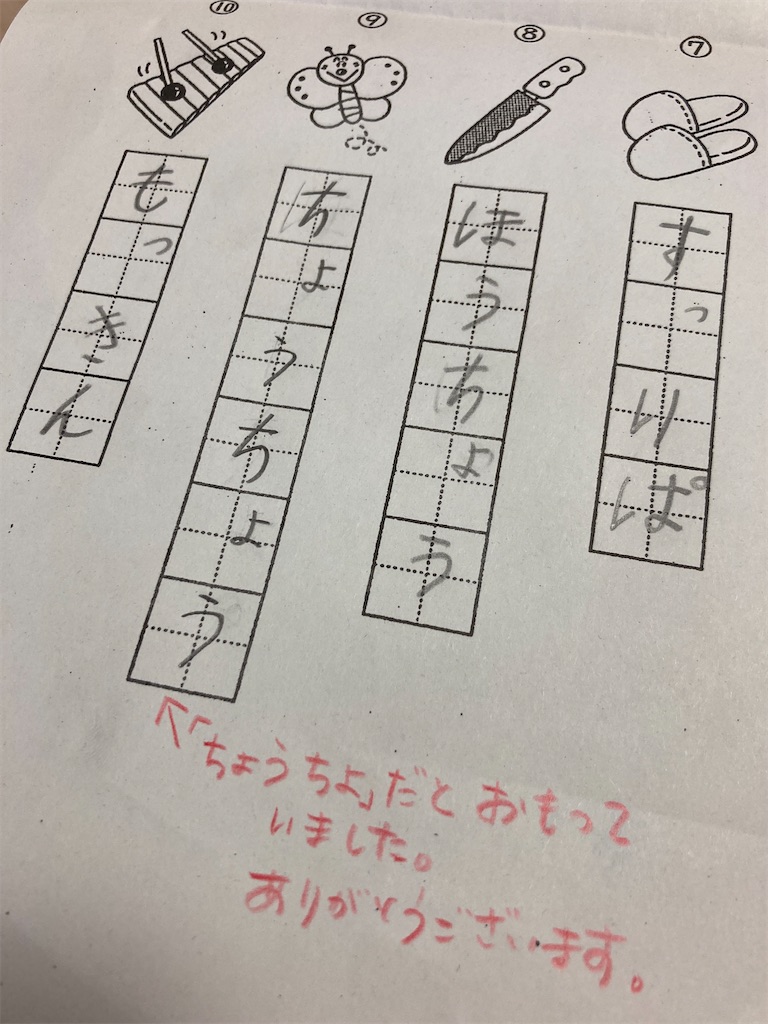 ⑦
すっりぱ
⑧
ほうちょう
⑨
ちょうちょう
⑩
もっきん
↑「ちょうちょ」だとおもって
いました。
ありがとうございます。